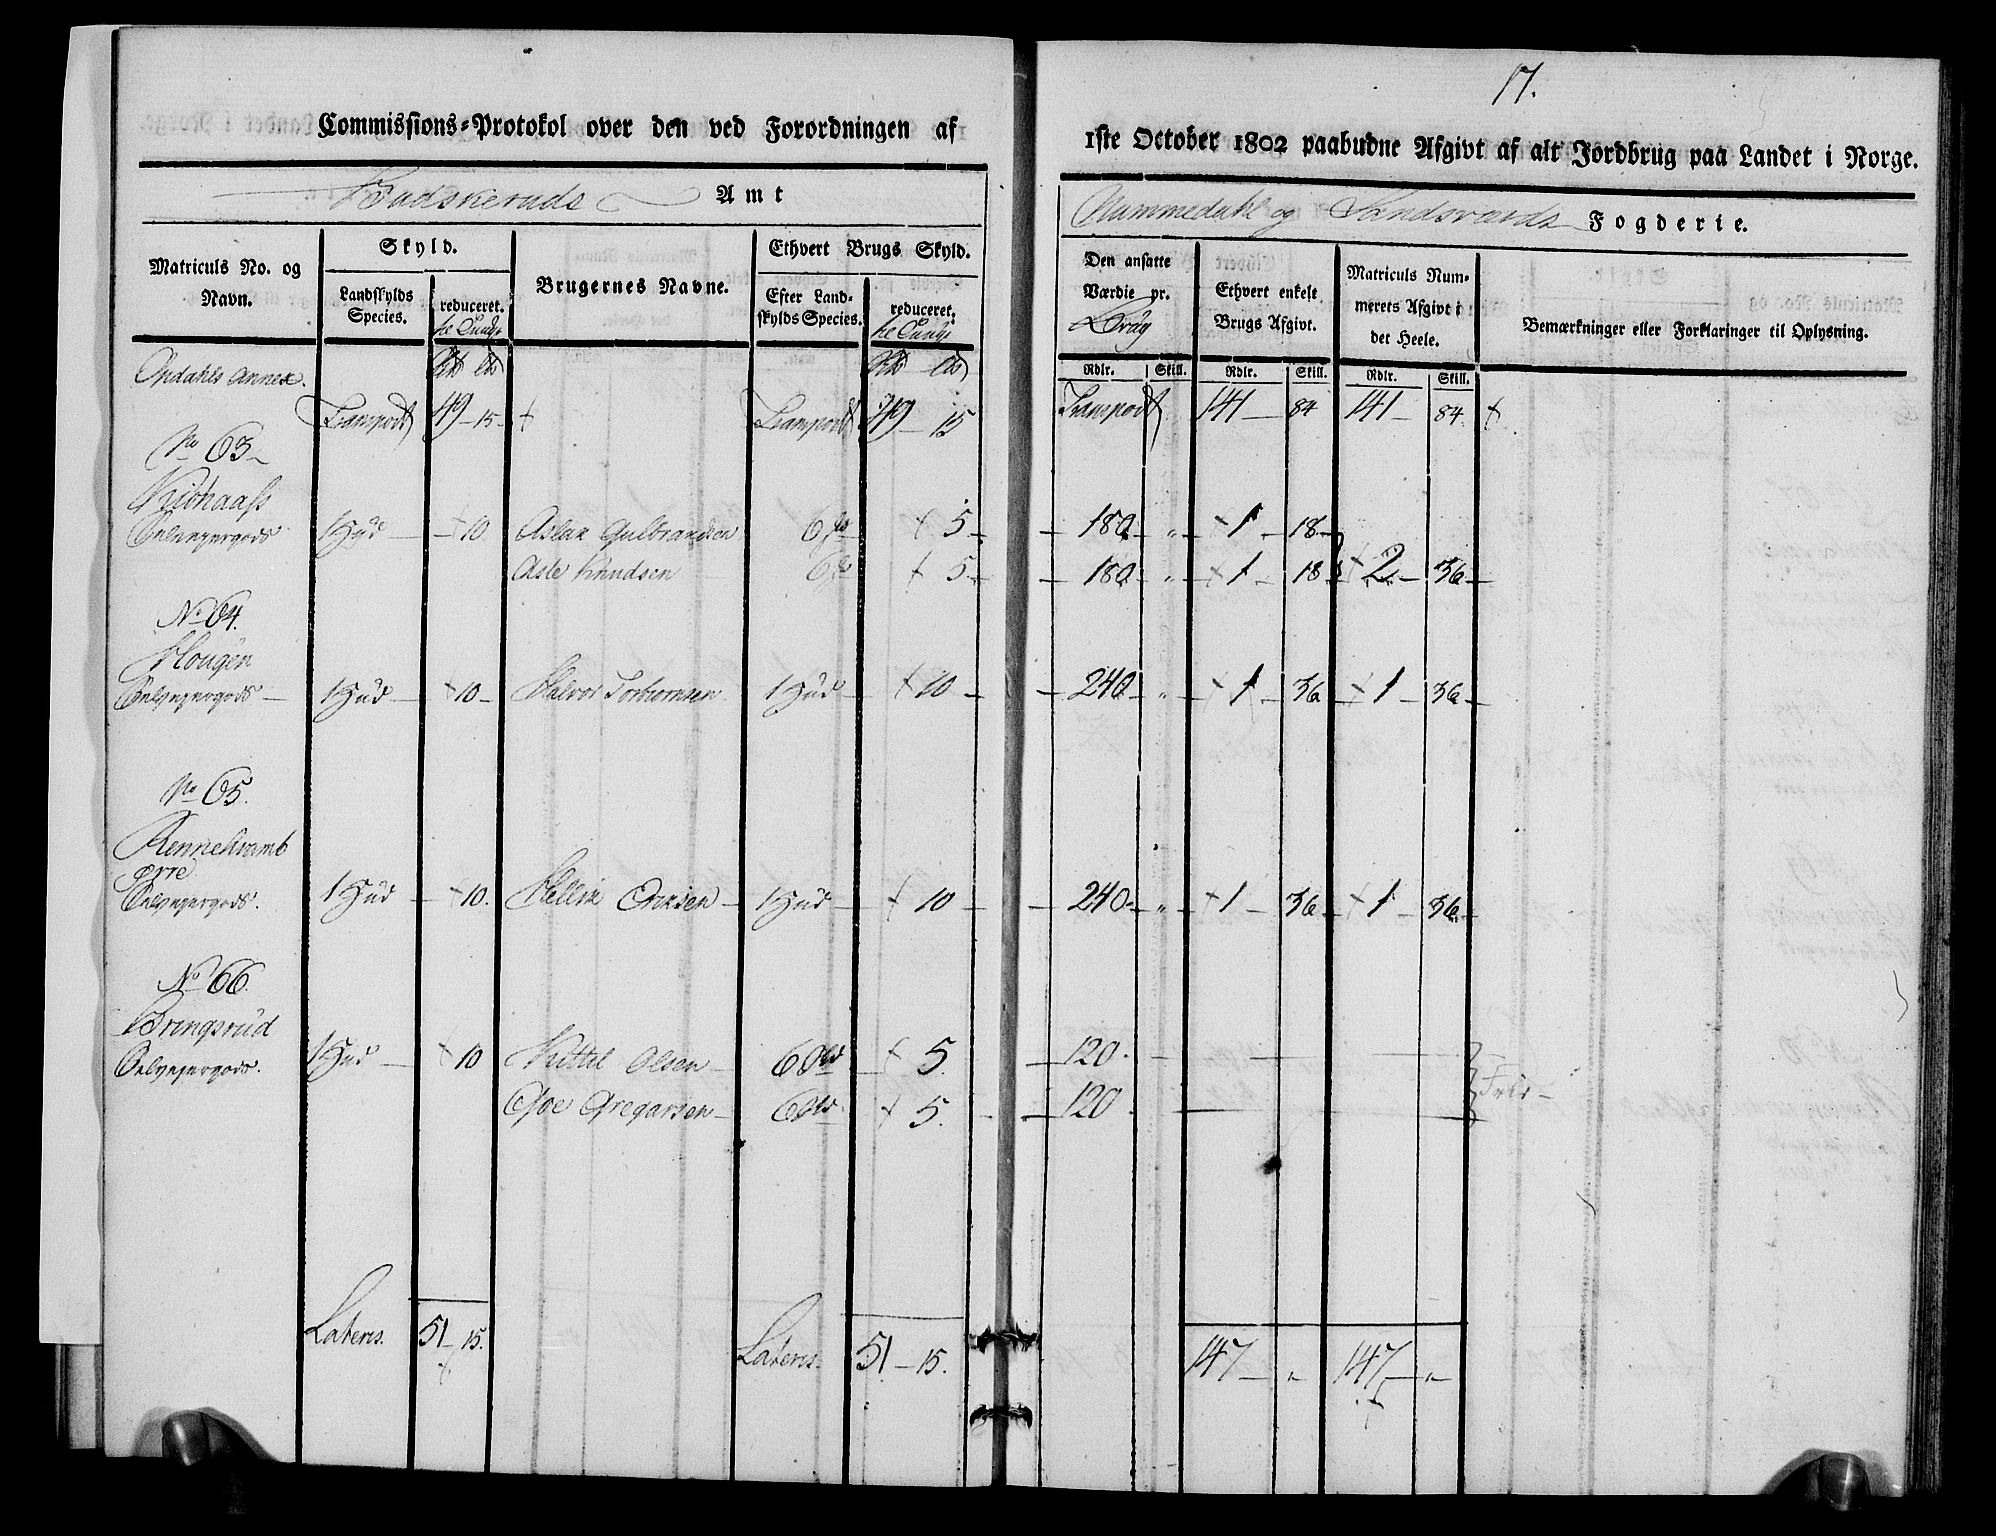 17.
Commissions-Protokol over den ved Forordningen af 1ste October 1802 paabudne Afgivt af alt Jordbrug paa Landet i Norge.
Budskeruds Amt Nummedahl og Sandsværds Fogderie.
Matriculs No. og Navn. Skyld. Landskylds Species. reduceret. Brugernes Navne. Ethvert Brugs Skyld. Efter Landskylds Species. reduceret. Den ansatte Værdie pr. Brug Ethvert enkelt Brugs Afgivt. Matriculs Nummerets Afgivt i det Heele. Bemærkninger eller Forklaringer til Oplysning.
Rdlr. Skill. Rdlr. Skill. Rdlr. Skill.
Opdahls Annex.
Transport 49 - 15 - Transport 49 - 15 Transport 141 - 84 141 - 84.
No 63
Selvejergods 1 Hud - 10 Aslak Gulbrandsen 6 5 - 180 " 1 - 18
Asle Knudsen 6 5 - 180 " 1 - 18 2 - 36
No 64.
Hougen
Selvejergods - 1 Hud - 10 - Halvor Torbiornsen 1 Hud - 10 - 240 " 1 - 36 1 - 36
No 65.
Selvejergods. 1 Hud - 10. Hellik Ericksen - 1 Hud - 10 - 240 - " 1 - 36 1 - 36
No 66.
Bringsrud
Selvejergods. 1 Hud - 10 Kittil Olsen - 6 5. 120.
Gregarsen - 6 5. 120 Frie -
Lateris. 51 - 15. Lateris. 51 - 15. 147 - " 147 - "